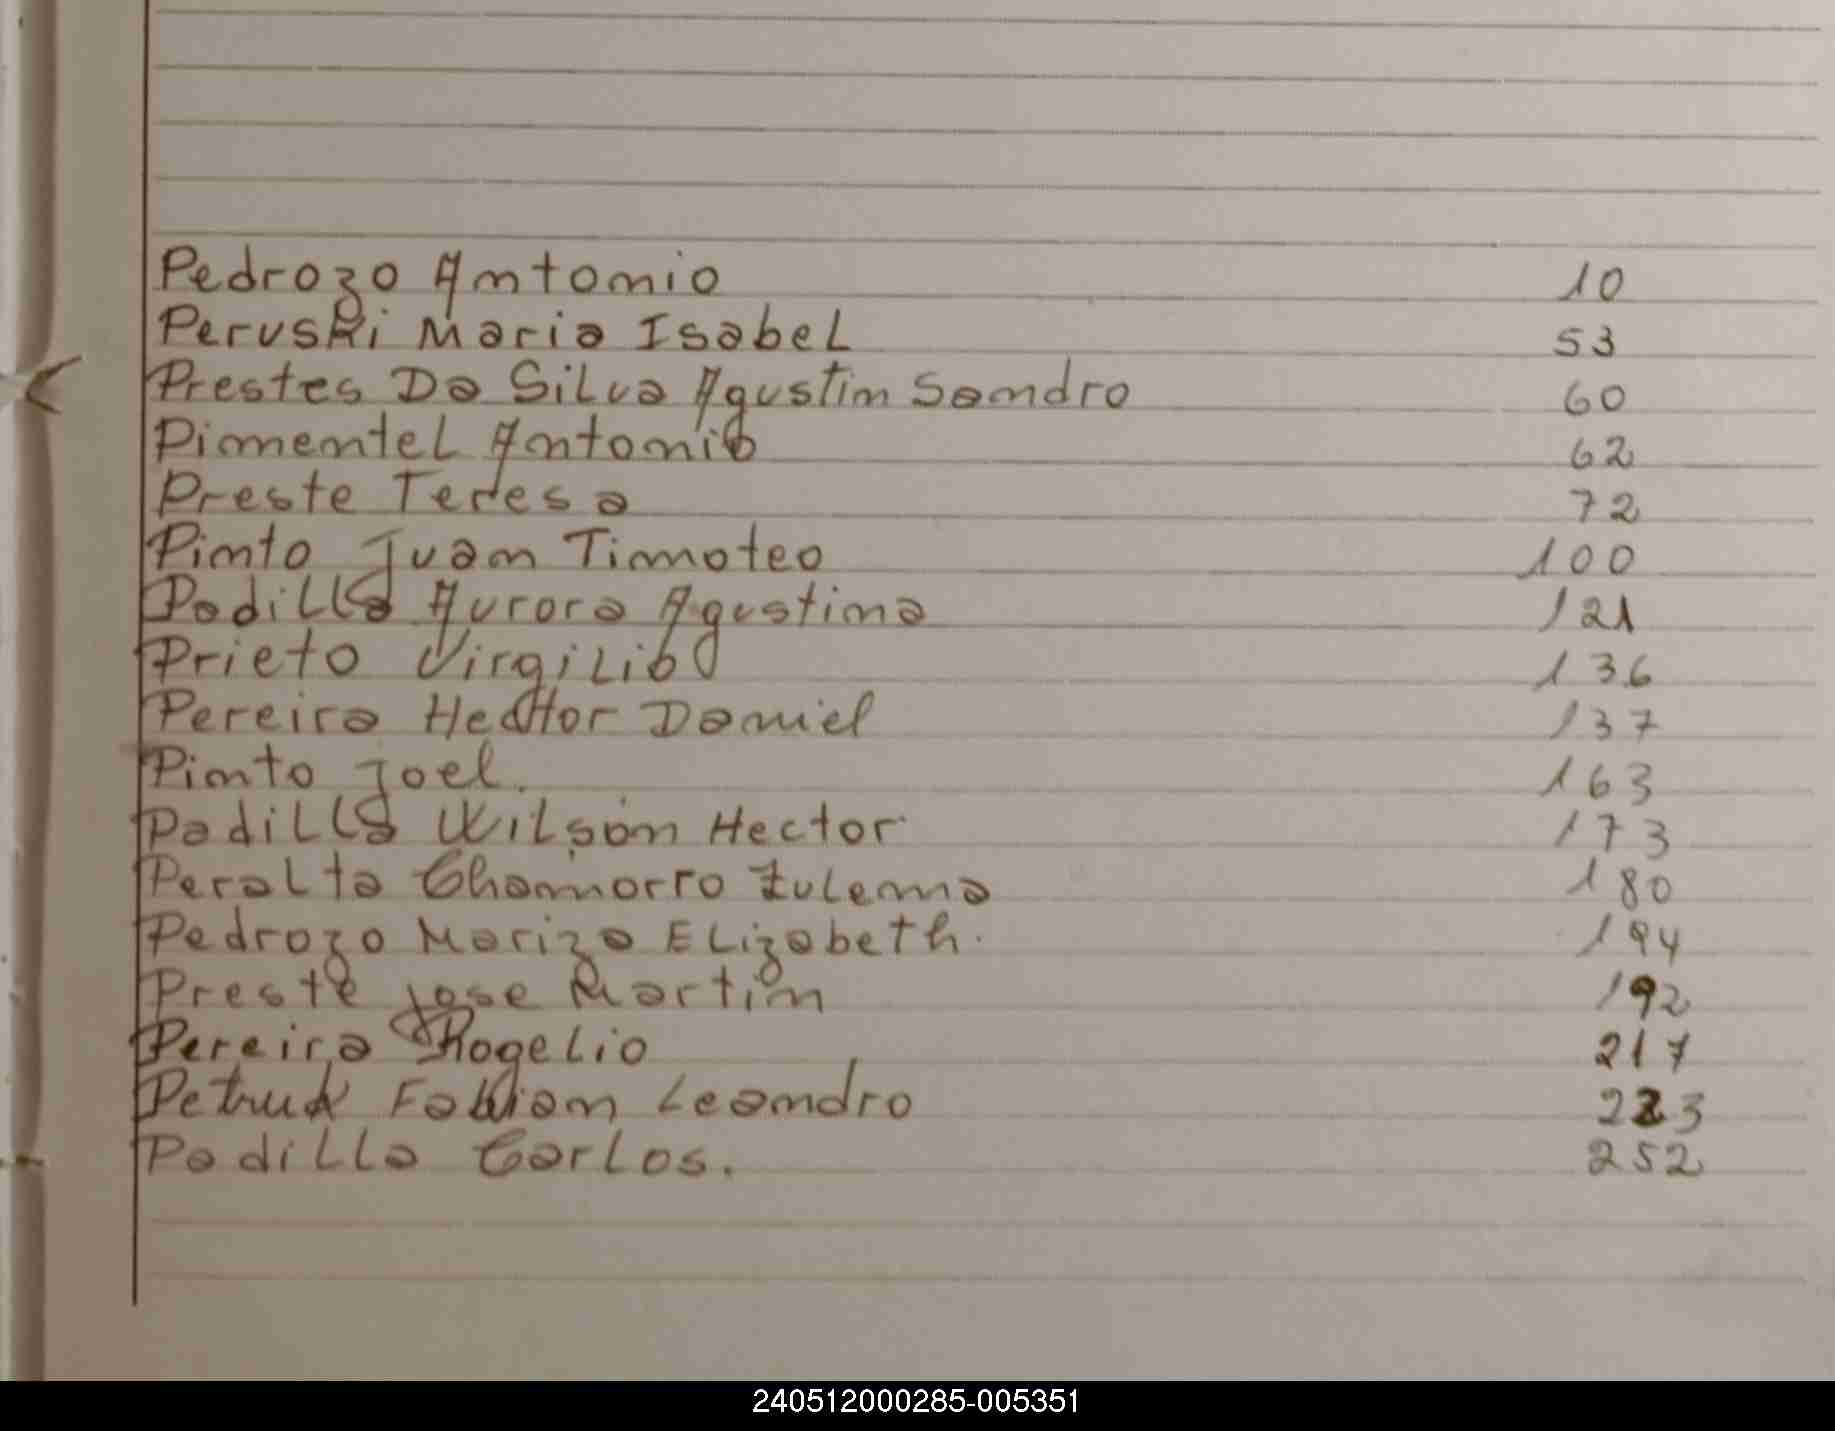 Pedrozo Antonio 10
Peruski Maria Isabel 53
Prestes Da Silva Agustin Sandro 60
Pimentel Antonio 62
Preste Teresa 72
Pinto Juan Timoteo 100
Padilla Aurora Agustina 121
Prieto Virgilio 136
Pereira Hector Daniel 137
Pinto Joel. 163
Padilla Wilson Hector 173
Peralta Chamorro Zulema 180
Pedrozo Mariza Elizabeth. 194
Preste Jose Martin 192
Pereira Rogelio 217
Fabian Leandro 223
Padilla Carlos. 252
240512000285-005351